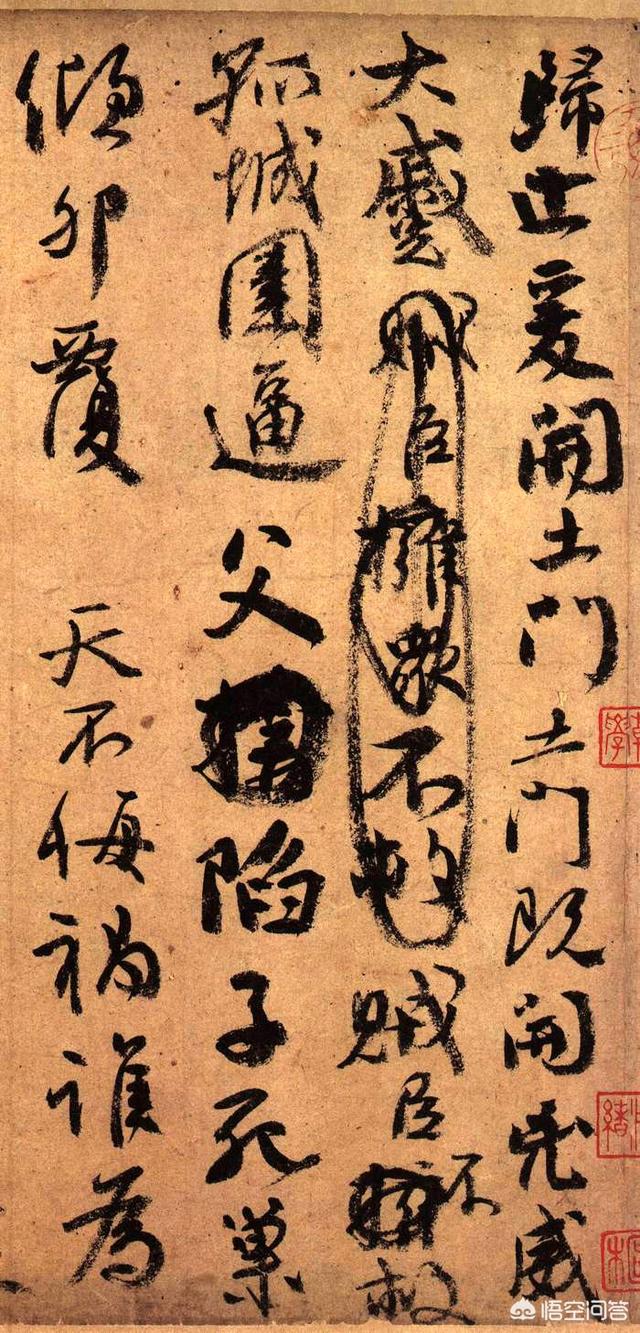 歸止爰開土門土門既開凶威
大蹙賊臣擁眾不救賊臣不救
孤城圍逼父陷子死巢
傾卵覆 天不悔禍誰為
悟空问答